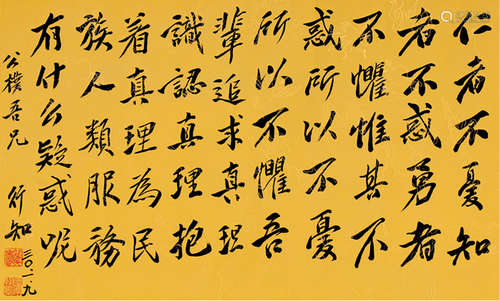 仁者不憂知
者不惑勇者
不懼惟其不
惑所以不憂
所以不懼吾
輩追求真理
識認真理抱
着真理為民
族人類服務
有什么疑惑呢
公樸吾兄
行知